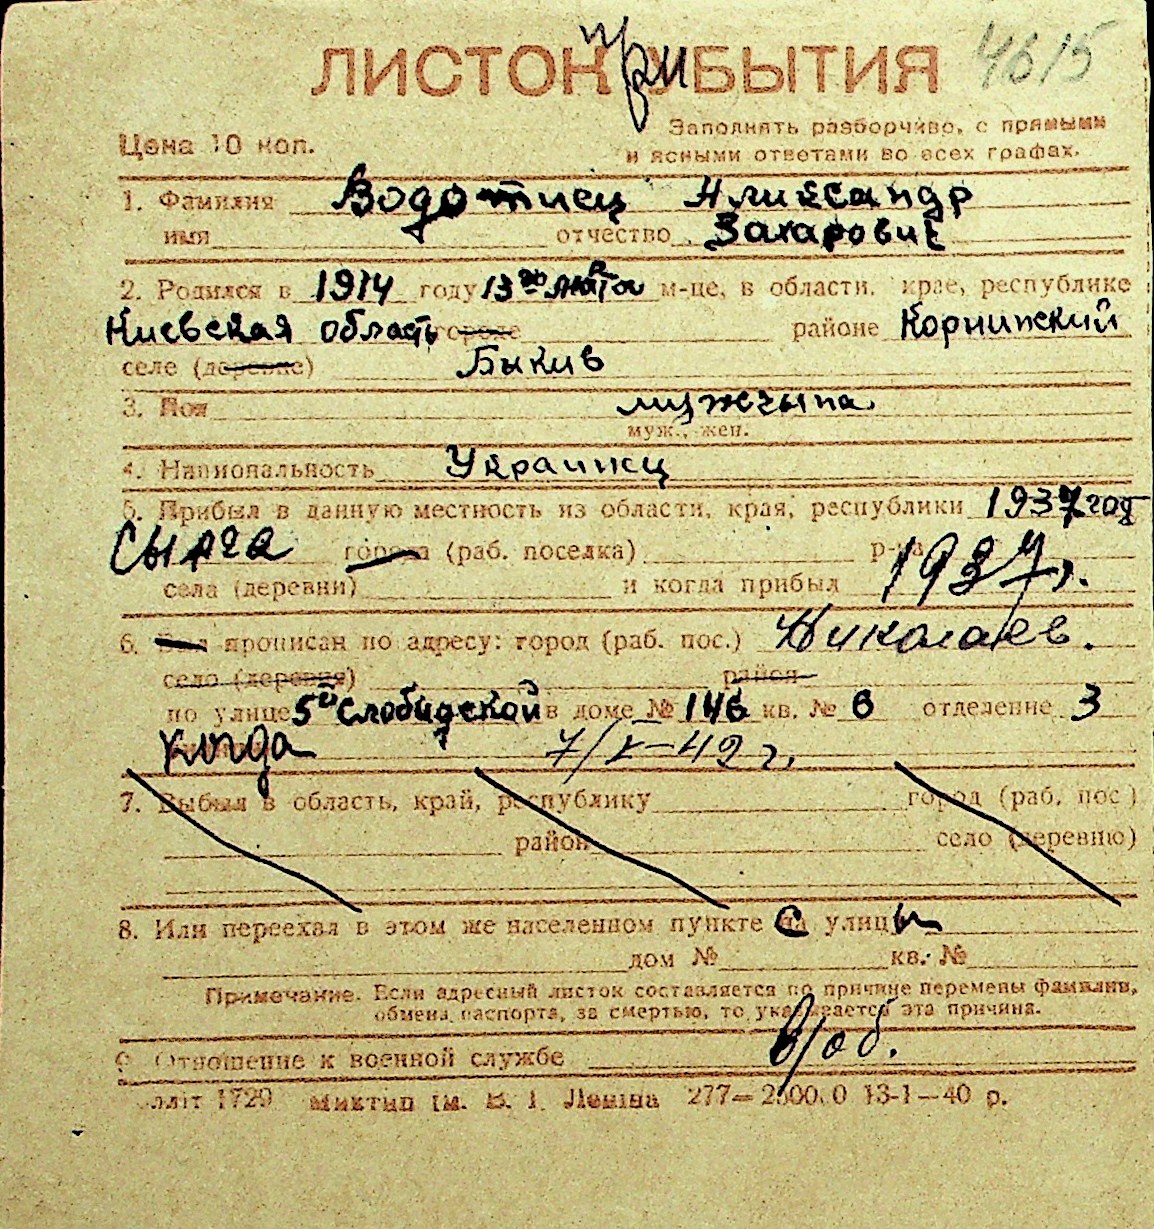 ЛИСТОК при УБЫТИЯ 4615
Заполнять разборчиво, с прямыми
Цена 10 коп. и ясными ответами во всех графах.
1. Фамилия Водотиец Александр
имя отчество Захаровис
2. Родился в 1914 году 13го марта м-це, в области, крае, республике
Киевская область городе районе Корнинский
селе (деревне) Быкив
3. Пол мужчына
муж., жен.
4. Национальность Украинец
5. Прибыл в данную местность из области, края, республики 1937 год
города (раб. поселка) р-на
села (деревни) и когда прибыл 1937 г.
6. Был прописан по адресу: город (раб. пос.) Николаев.
село (деревня) район
по улице 5й Слободской в доме № 146 кв. № 6 отделение 3
когда 7/X-42 г.
7. Выбыл в область, край, республику город (раб. пос)
район село (деревню)
8. Или переехал в этом же населенном пункте с улицы
дом № кв. №
Примечание. Если адресный листок составляется по причине перемены фамилии,
обмена паспорта, за смертью, то указывается эта причина.
9. Отношение к военной службе в/об.
лліт 1729 Миктип ім. В. І. Леніна 277— 13-1—40 р.